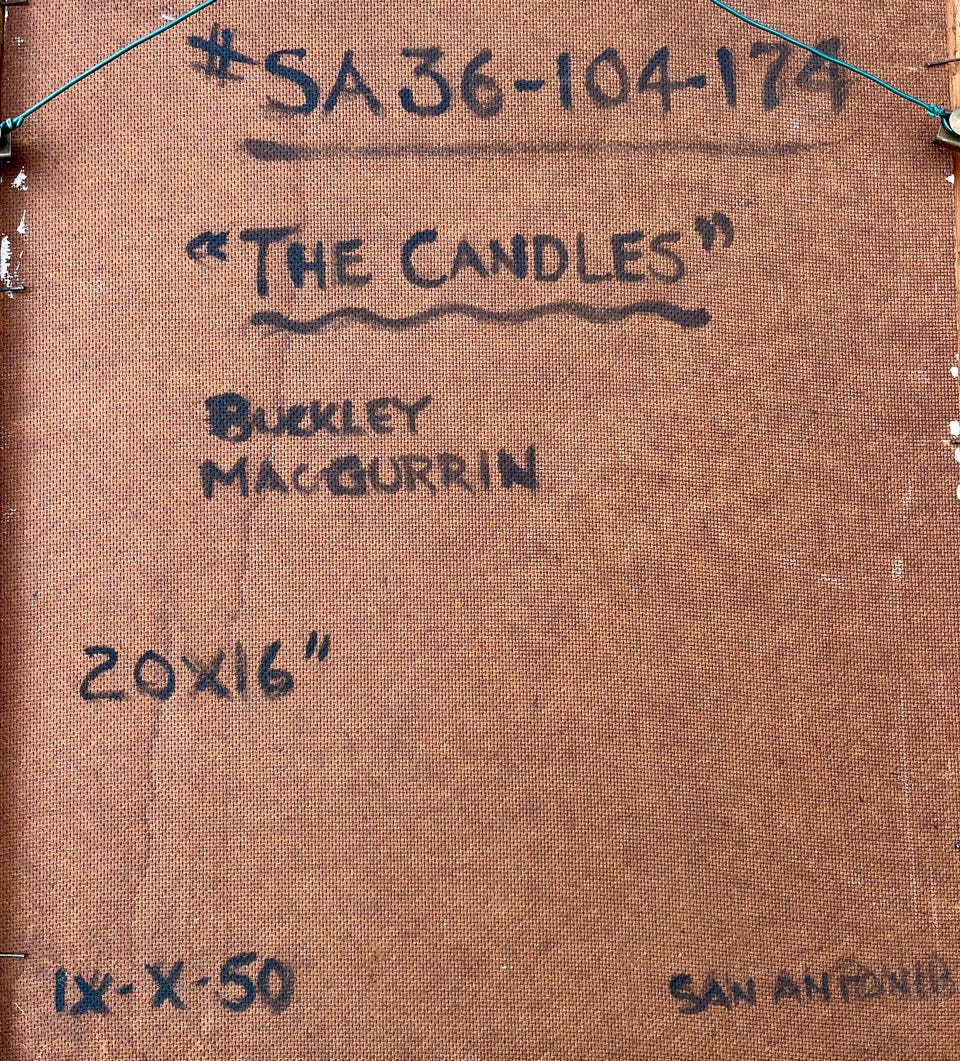 #SA36-104-174
"THE CANDLES"
BUCKLEY
MACGURRIN
20X16"
IX-X-50
SAN ANTONIO